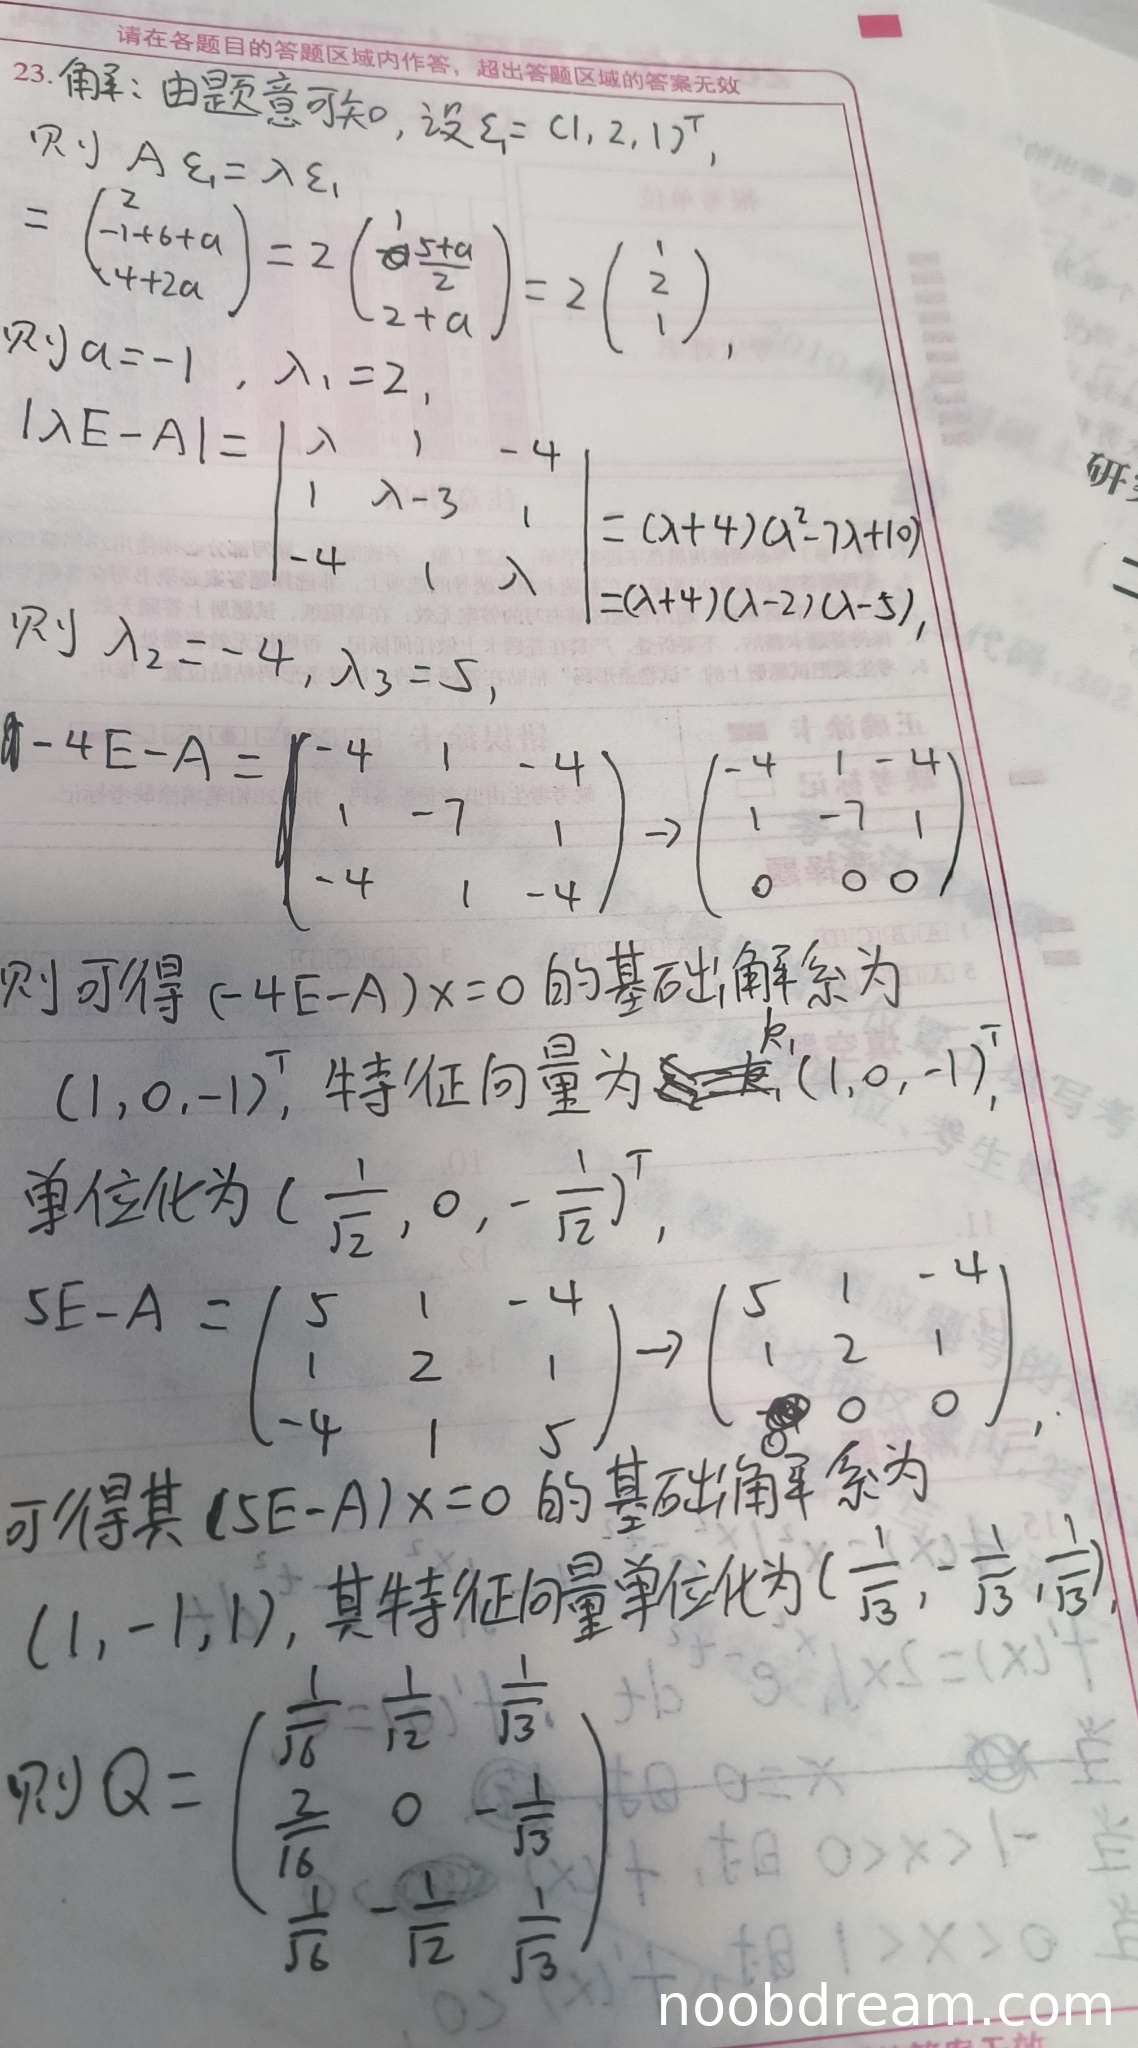 请在各题目的答题区域内作答，超出答题区域的答案无效
23. 解：由题意可知，设ξ₁=(1,2,1)ᵀ,
则 Aξ₁=λξ₁
= (2 -1+6+a 4+2a) = 2 (1 5+a/2 2+a) = 2 (1 2 1),
则a=-1, λ₁=2,
|λE-A|= | λ 1 -4
1 λ-3 1
-4 1 λ | =(λ+4)(λ²-7λ+10)
=(λ+4)(λ-2)(λ-5),
则 λ₂=-4, λ₃=5,
-4E-A = ( -4 1 -4 → ( -4 1 -4
1 -7 1 1 -7 1
-4 1 -4 ) 0 0 0 )
则可得(-4E-A)x=0的基础解系为
(1,0,-1)ᵀ, 特征向量为 k₁(1,0,-1)ᵀ,
单位化为(1/√2, 0, -1/√2)ᵀ,
5E-A = ( 5 1 -4 → ( 5 1 -4
1 2 1 1 2 1
-4 1 5 ) 0 0 0 ),
可得其(5E-A)x=0的基础解系为
(1,-1,1), 其特征向量单位化为(1/√3, -1/√3, 1/√3),
则Q= ( 1/√6 1/√2 1/√3
2/√6 0 -1/√3
1/√6 -1/√2 1/√3 )
noobdream.com